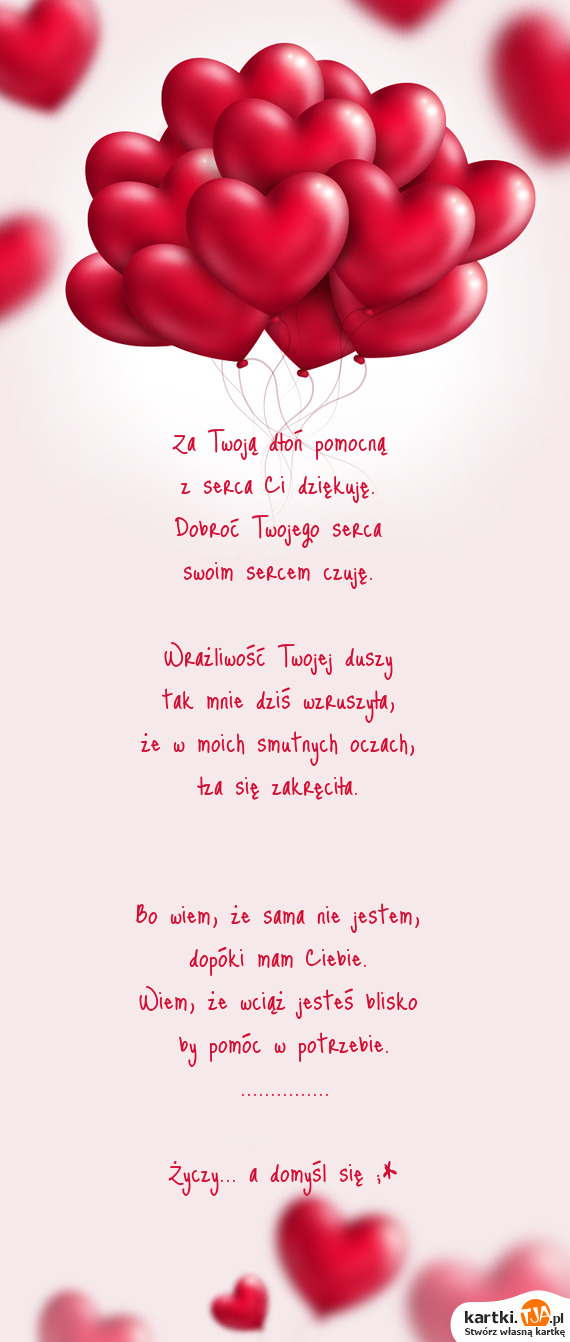 Za Twoją dłoń pomocną
z serca Ci dziękuję.
Dobroć Twojego serca
swoim sercem czuję.
Wrażliwość Twojej duszy
tak mnie dziś wzruszyła,
że w moich smutnych oczach,
łza się zakręciła.
Bo wiem, że sama nie jestem,
dopóki mam Ciebie.
Wiem, że wciąż jesteś blisko
by pomóc w potrzebie.
...............
Życzy... a domyśl się ;*
kartki.TJA.pl
Stwórz własną kartkę